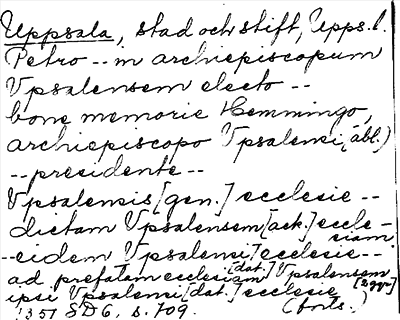 Uppsala, stad och stift, Upps. l.
Petro -- in archiepiscopum
Vpsalensem electo --
bone memorie Hemmingo,
archiepiscopo Vpsalensi (abl.)
-- presidente --
Vpsalensis [gen.] ecclesie --
dictam Vpsalensem [ack.] eccle-
siam
-- eidem Vpsalensi ecclesie --
ad prefatam ecclesiam Vpsalensem
ipsi Vpsalensi [dat.] ecclesie [2ggr]
1351 SD6, s. 709. (forts.)